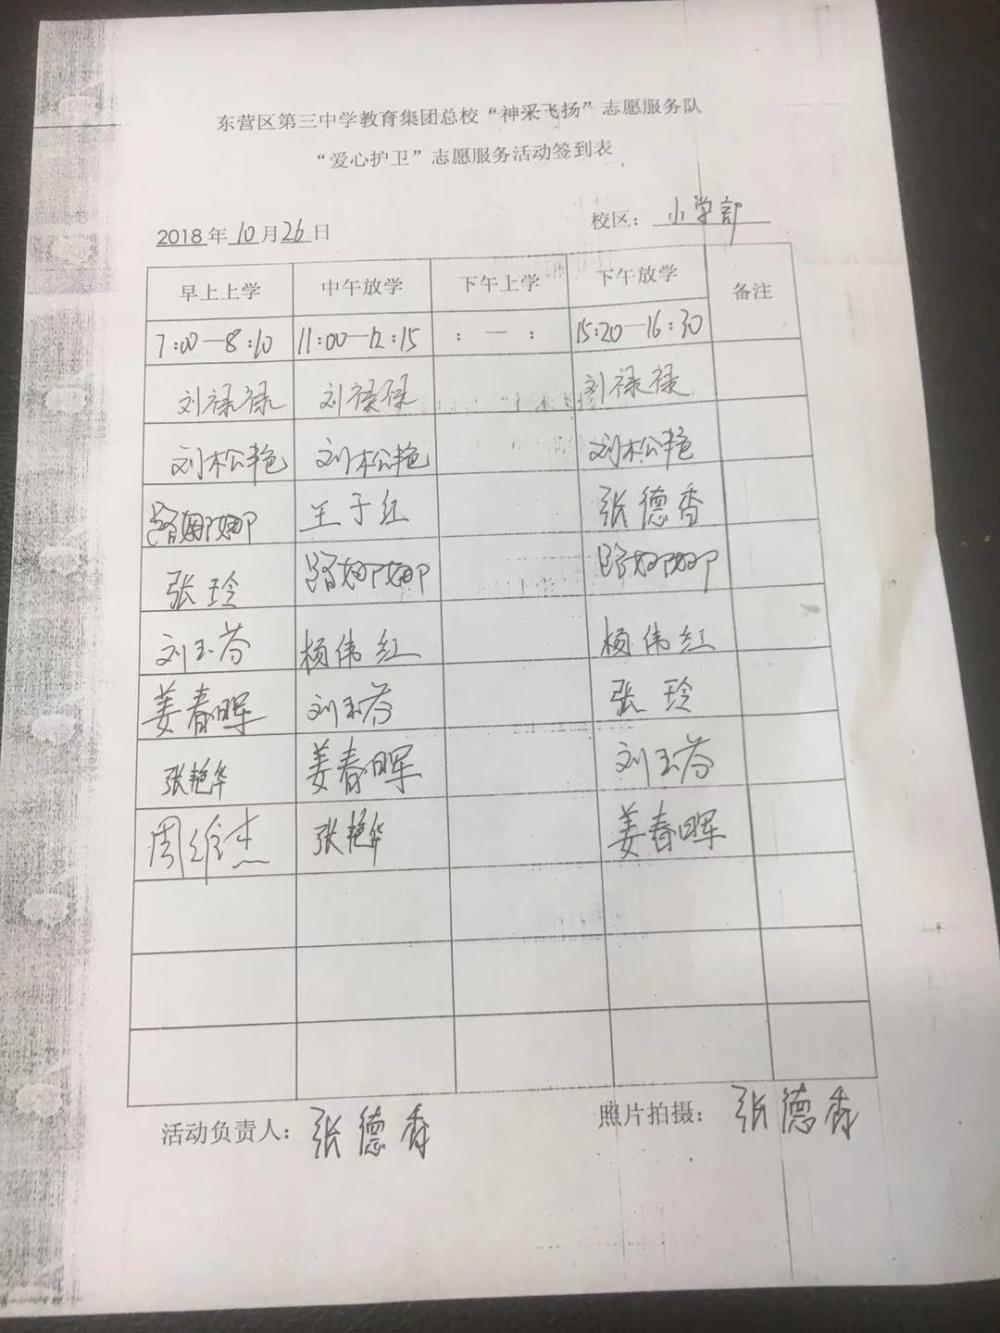 东营区第三中学教育集团总校“神采飞扬”志愿服务队
“爱心护卫”志愿服务活动签到表
2018年10月26日 校区：小学部
早上上学 中午放学 下午上学 下午放学 备注
7:00—8:10 11:00—12:15 : — : 15:20—16:30
刘禄禄 刘禄禄 刘禄禄
刘松艳 刘松艳 刘松艳
路娜娜 王于红 张德香
张玲 路娜娜 路娜娜
刘玉芬 杨伟红 杨伟红
姜春晖 刘玉芬 张玲
张艳华 姜春晖 刘玉芬
周维杰 张艳华 姜春晖
活动负责人：张德香 照片拍摄：张德香